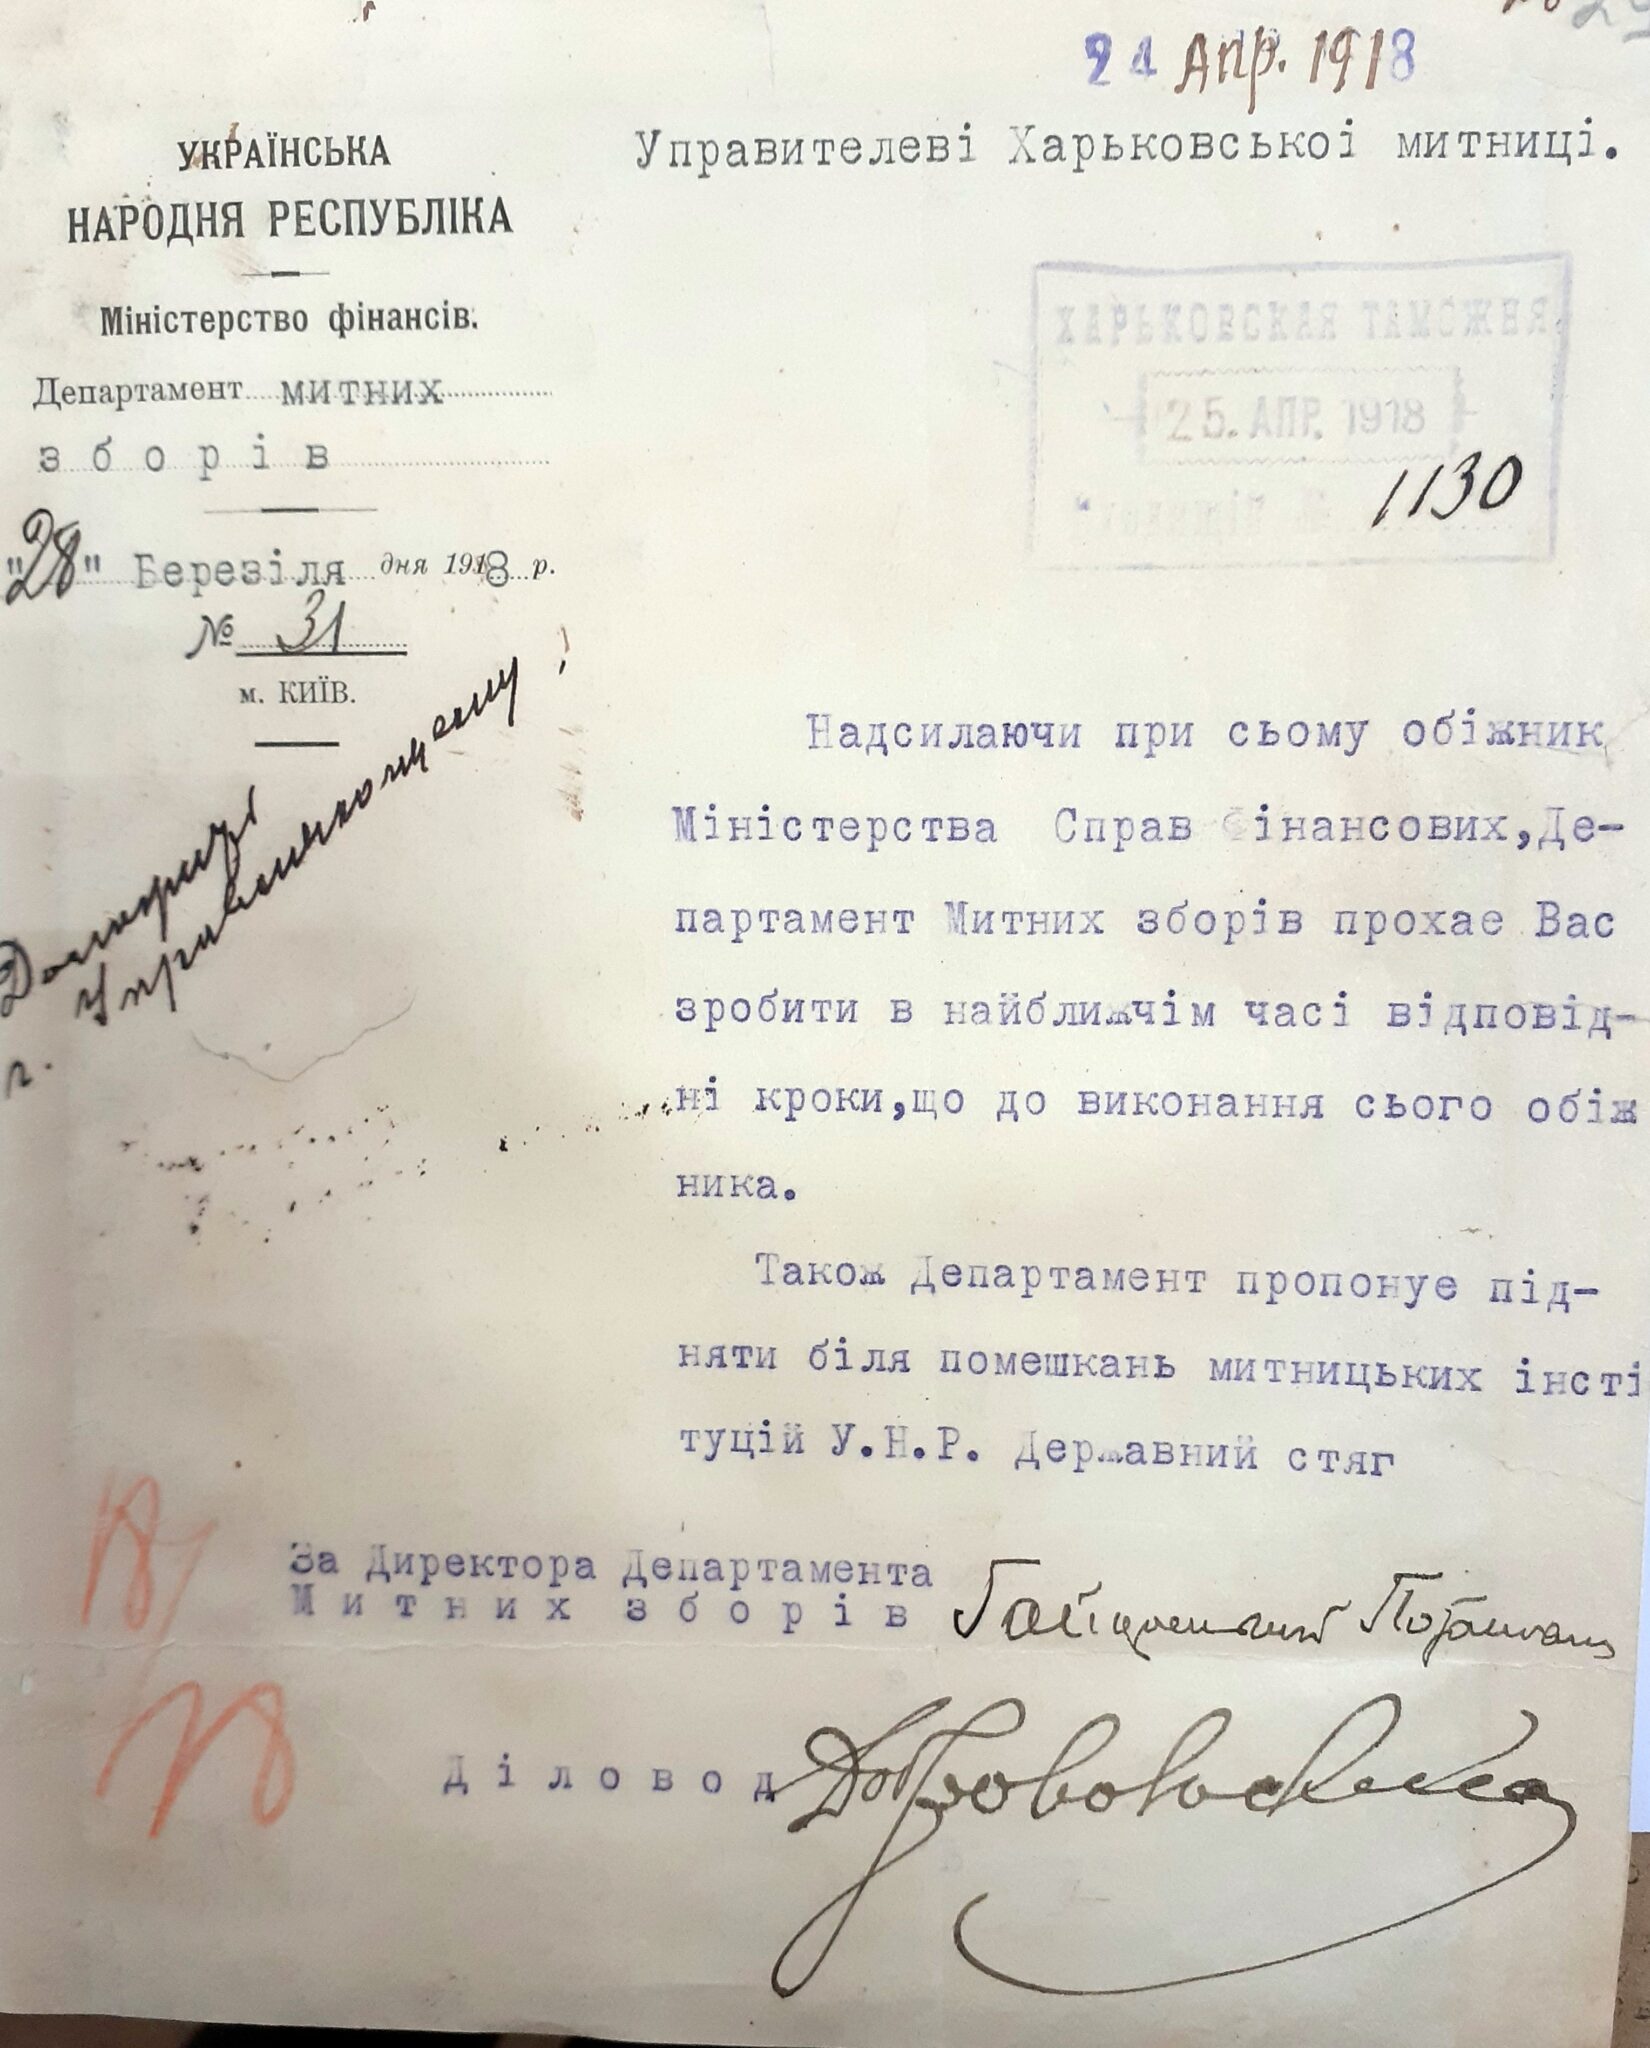 24 Апр. 1918
УКРАЇНСЬКА
НАРОДНЯ РЕСПУБЛІКА
Міністерство фінансів.
Департамент митних
зборів
"28" Березіля дня 1918 р.
№ 31
м. КИЇВ.
Управителеві Харьковськоі митниці.
ХАРЬКОВСКАЯ ТАМОЖНЯ
25. АПР. 1918
1130
Управляющему
г.
Надсилаючи при сьому обіжник
Міністерства Справ Фінансових,Де-
партамент Митних зборів прохае Вас
зробити в найближчім часі відповід-
ні кроки,що до виконання сього обіж
ника.
Також Департамент пропонуе під-
няти біля помешкань митницьких інсті
туцій У.Н.Р. Державний стяг
За Директора Департамента
Митних зборів
Діловод